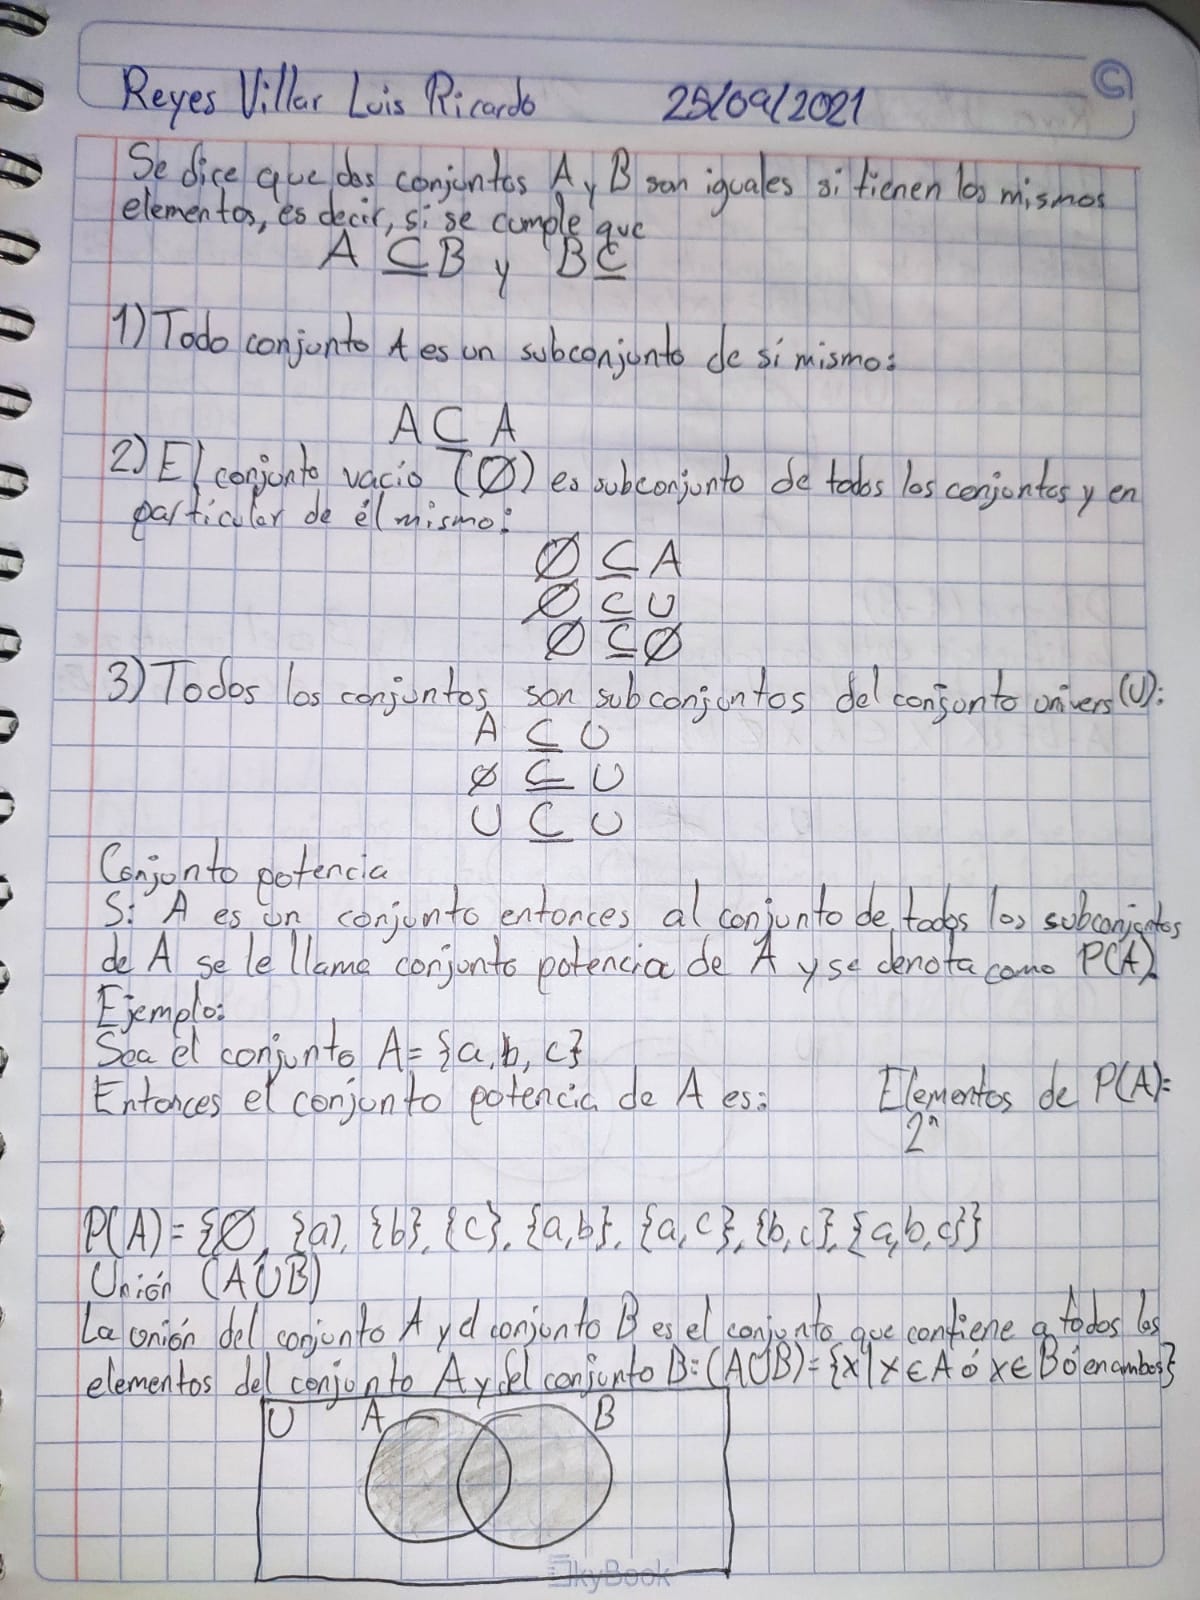 Reyes Villar Luis Ricardo 25/09/2021
Se dice que dos conjuntos A y B son iguales si tienen los mismos
elementos, es decir, si se cumple que
A ⊆ B y B ⊆
1) Todo conjunto A es un subconjunto de sí mismo:
A ⊆ A
2) El conjunto vacio (∅) es subconjunto de todos los conjuntos y en
particular de él mismo:
∅ ⊆ A
∅ ⊆ U
∅ ⊆ ∅
3) Todos los conjuntos son subconjuntos del conjunto univers (U):
A ⊆ U
∅ ⊆ U
U ⊆ U
Conjunto potencia
Si A es un conjunto entonces al conjunto de todos los subconjntos
de A se le llama conjunto potencia de A y se denota como P(A)
Ejemplo:
Sea el conjunto A= {a, b, c}
Entonces el conjunto potencia de A es: Elementos de P(A)=
2ⁿ
P(A) = {∅, {a}, {b}, {c}, {a,b}, {a,c}, {b,c}, {a,b,c}}
Unión (A∪B)
La unión del conjunto A y el conjunto B es el conjunto que contiene a todos los
elementos del conjunto A y del conjunto B: (A∪B) = {x | x ∈ A ó x ∈ B ó en ambos}
U A B
SkyBook